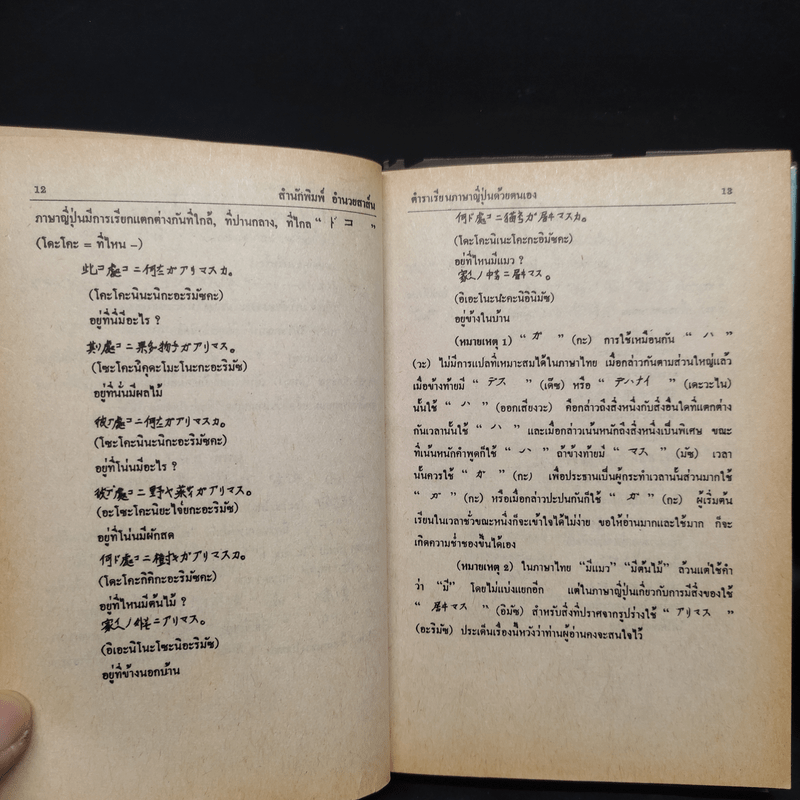 12
สำนักพิมพ์ อำนวยสาส์น
ภาษาญี่ปุ่นมีการเรียกแตกต่างกันที่ใกล้, ที่ปานกลาง, ที่ไกล “ ドコ ”
(โดะโคะ = ที่ไหน –)
此コ處コニ何ガアリマスカ。
(โคะโคะนินะนิกะอะริมัซคะ)
อยู่ที่นี่มีอะไร ?
其ソ處コニ果物ガアリマス。
(โซะโคะนิคุดะโมะโนะกะอะริมัซ)
อยู่ที่นั่นมีผลไม้
處コニ何ガアリマスカ。
(โซะโคะนินะนิกะอะริมัซคะ)
อยู่ที่โน่นมีอะไร ?
處コニ野ヤ菜ガアリマス。
(อะโซะโคะนิยะไจ่ยกะอะริมัซ)
อยู่ที่โน่นมีผักสด
何ド處コニ樹ガアリマスカ。
(โดะโคะกิคิกะอะริมัซคะ)
อยู่ที่ไหนมีต้นไม้ ?
家ノ外ニアリマス。
(อิเอะนิโนะโซะนิอะริมัซ)
อยู่ที่ข้างนอกบ้าน
ตำราเรียนภาษาญี่ปุ่นด้วยตนเอง
13
何ド處コニ猫ガ居マスカ。
(โดะโคะนิเนะโคะกะอิมัซคะ)
อยู่ที่ไหนมีแมว ?
家ノ中ニ居マス。
(อิเอะโนะน่ะคะนิอินิมัซ)
อยู่ข้างในบ้าน
(หมายเหตุ 1) “ ガ ” (กะ) การใช้เหมือนกัน “ ハ ”
(วะ) ไม่มีการแปลที่เหมาะสมได้ในภาษาไทย เมื่อกล่าวกันตามส่วนใหญ่แล้ว
เมื่อข้างท้ายมี “ デス ” (เด๊ซ) หรือ “ デハナイ ” (เดะวะไน)
นั้นใช้ “ ハ ” (ออกเสียงวะ) คือกล่าวถึงสิ่งหนึ่งกับสิ่งอื่นใดที่แตกต่าง
กันเวลานั้นใช้ “ ハ ” และเมื่อกล่าวเน้นหนักถึงสิ่งหนึ่งเป็นพิเศษ ขณะ
ที่เน้นหนักคำพูดก็ใช้ “ ハ ” ถ้าข้างท้ายมี “ マス ” (มัซ) เวลา
นั้นควรใช้ “ ガ ” (กะ) เพื่อประธานเป็นผู้กระทำเวลานั้นส่วนมากใช้
“ ガ ” (กะ) หรือเมื่อกล่าวปะปนกันก็ใช้ “ ガ ” (กะ) ผู้เริ่มต้น
เรียนในเวลาชั่วขณะหนึ่งก็จะเข้าใจได้ไม่ง่าย ขอให้อ่านมากและใช้มาก ก็จะ
เกิดความช่ำชองขึ้นได้เอง
(หมายเหตุ 2) ในภาษาไทย “มีแมว” “มีต้นไม้” ล้วนแต่ใช้คำ
ว่า “มี” โดยไม่แบ่งแยกอีก แต่ในภาษาญี่ปุ่นเกี่ยวกับการมีสิ่งของใช้
“ 居マス ” (อิมัซ) สำหรับสิ่งที่ปราศจากรูปร่างใช้ “ アリマス ”
(อะริมัซ) ประเด็นเรื่องนี้หวังว่าท่านผู้อ่านคงจะสนใจไว้